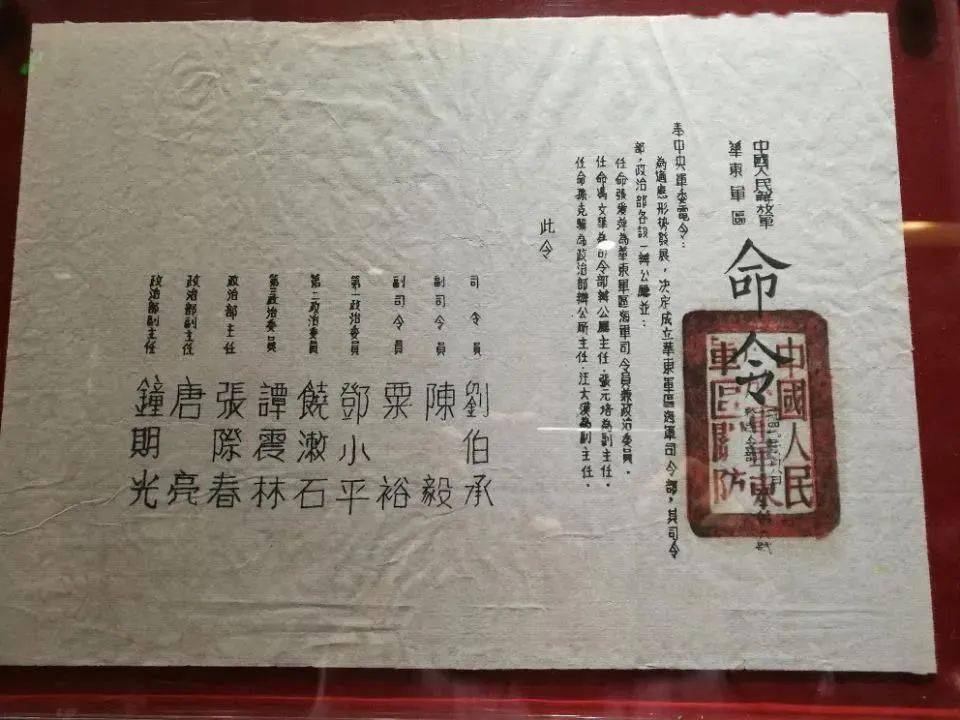 中國人民解放軍
華東軍區
命令
奉中央軍委電令：
為適應形势發展，决定成立華東軍區海軍司令部，其司令
部，政治部各設一辦公廳並：
任命張愛萍為華東軍區海軍司令員兼政治委員．
任命馮文華為司令部辦公廳主任．張元培為副主任．
任命孫克驥為政治部辦公所主任．汪大漠為副主任．
此令
司令員 劉伯承
副司令員 陳毅
副司令員 粟裕
第一政治委員 鄧小平
第二政治委員 饒漱石
第三政治委員 譚震林
政治部主任 張際春
政治部副主任 唐亮
政治部副主任 鐘期光
中國人民
華東
軍區關防